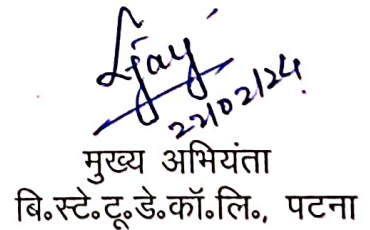 22/02/24
मुख्य अभियंता
बि॰स्टे॰टू॰डे॰कॉ॰लि॰, पटना